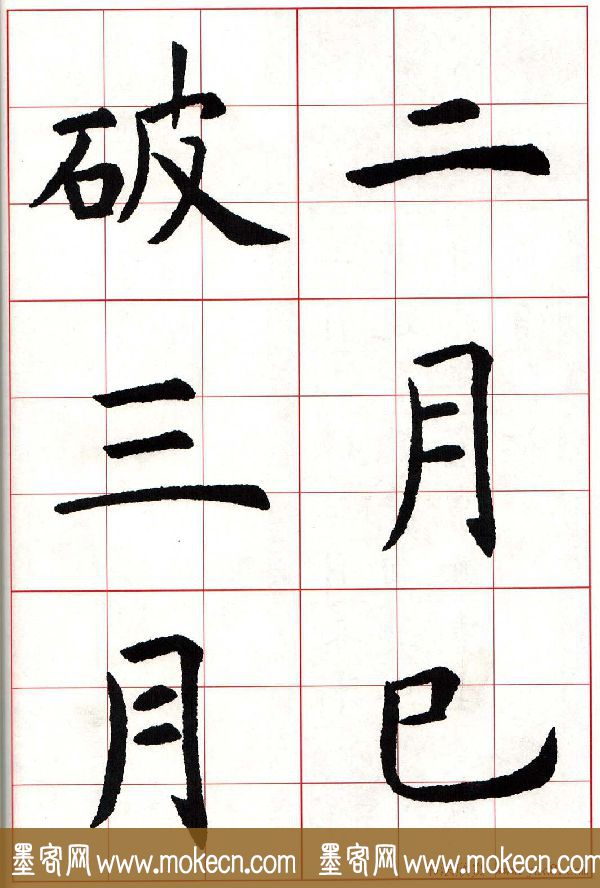 二月已
破三月
墨客网 www.mokecn.com 墨客网 www.mokecn.com